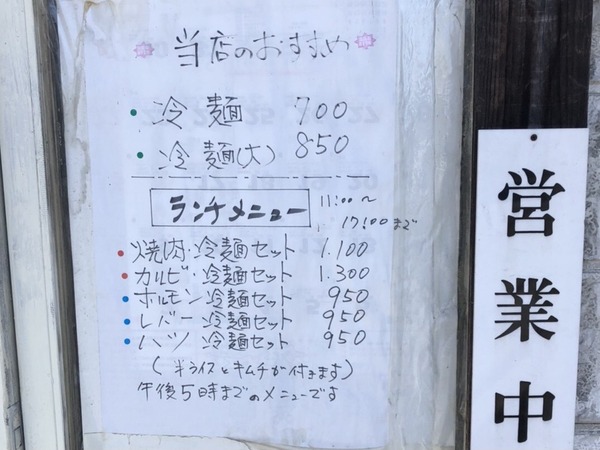 当店のおすすめ
・冷麺 700
・冷麺(大) 850
ランチメニュー 11:00〜
17:00まで
・焼肉・冷麺セット 1.100
・カルビ・冷麺セット 1.300
・ホルモン冷麺セット 950
・レバー冷麺セット 950
・ハツ冷麺セット 950
(半ライスとキムチが付きます)
午後5時までのメニューです
営業中